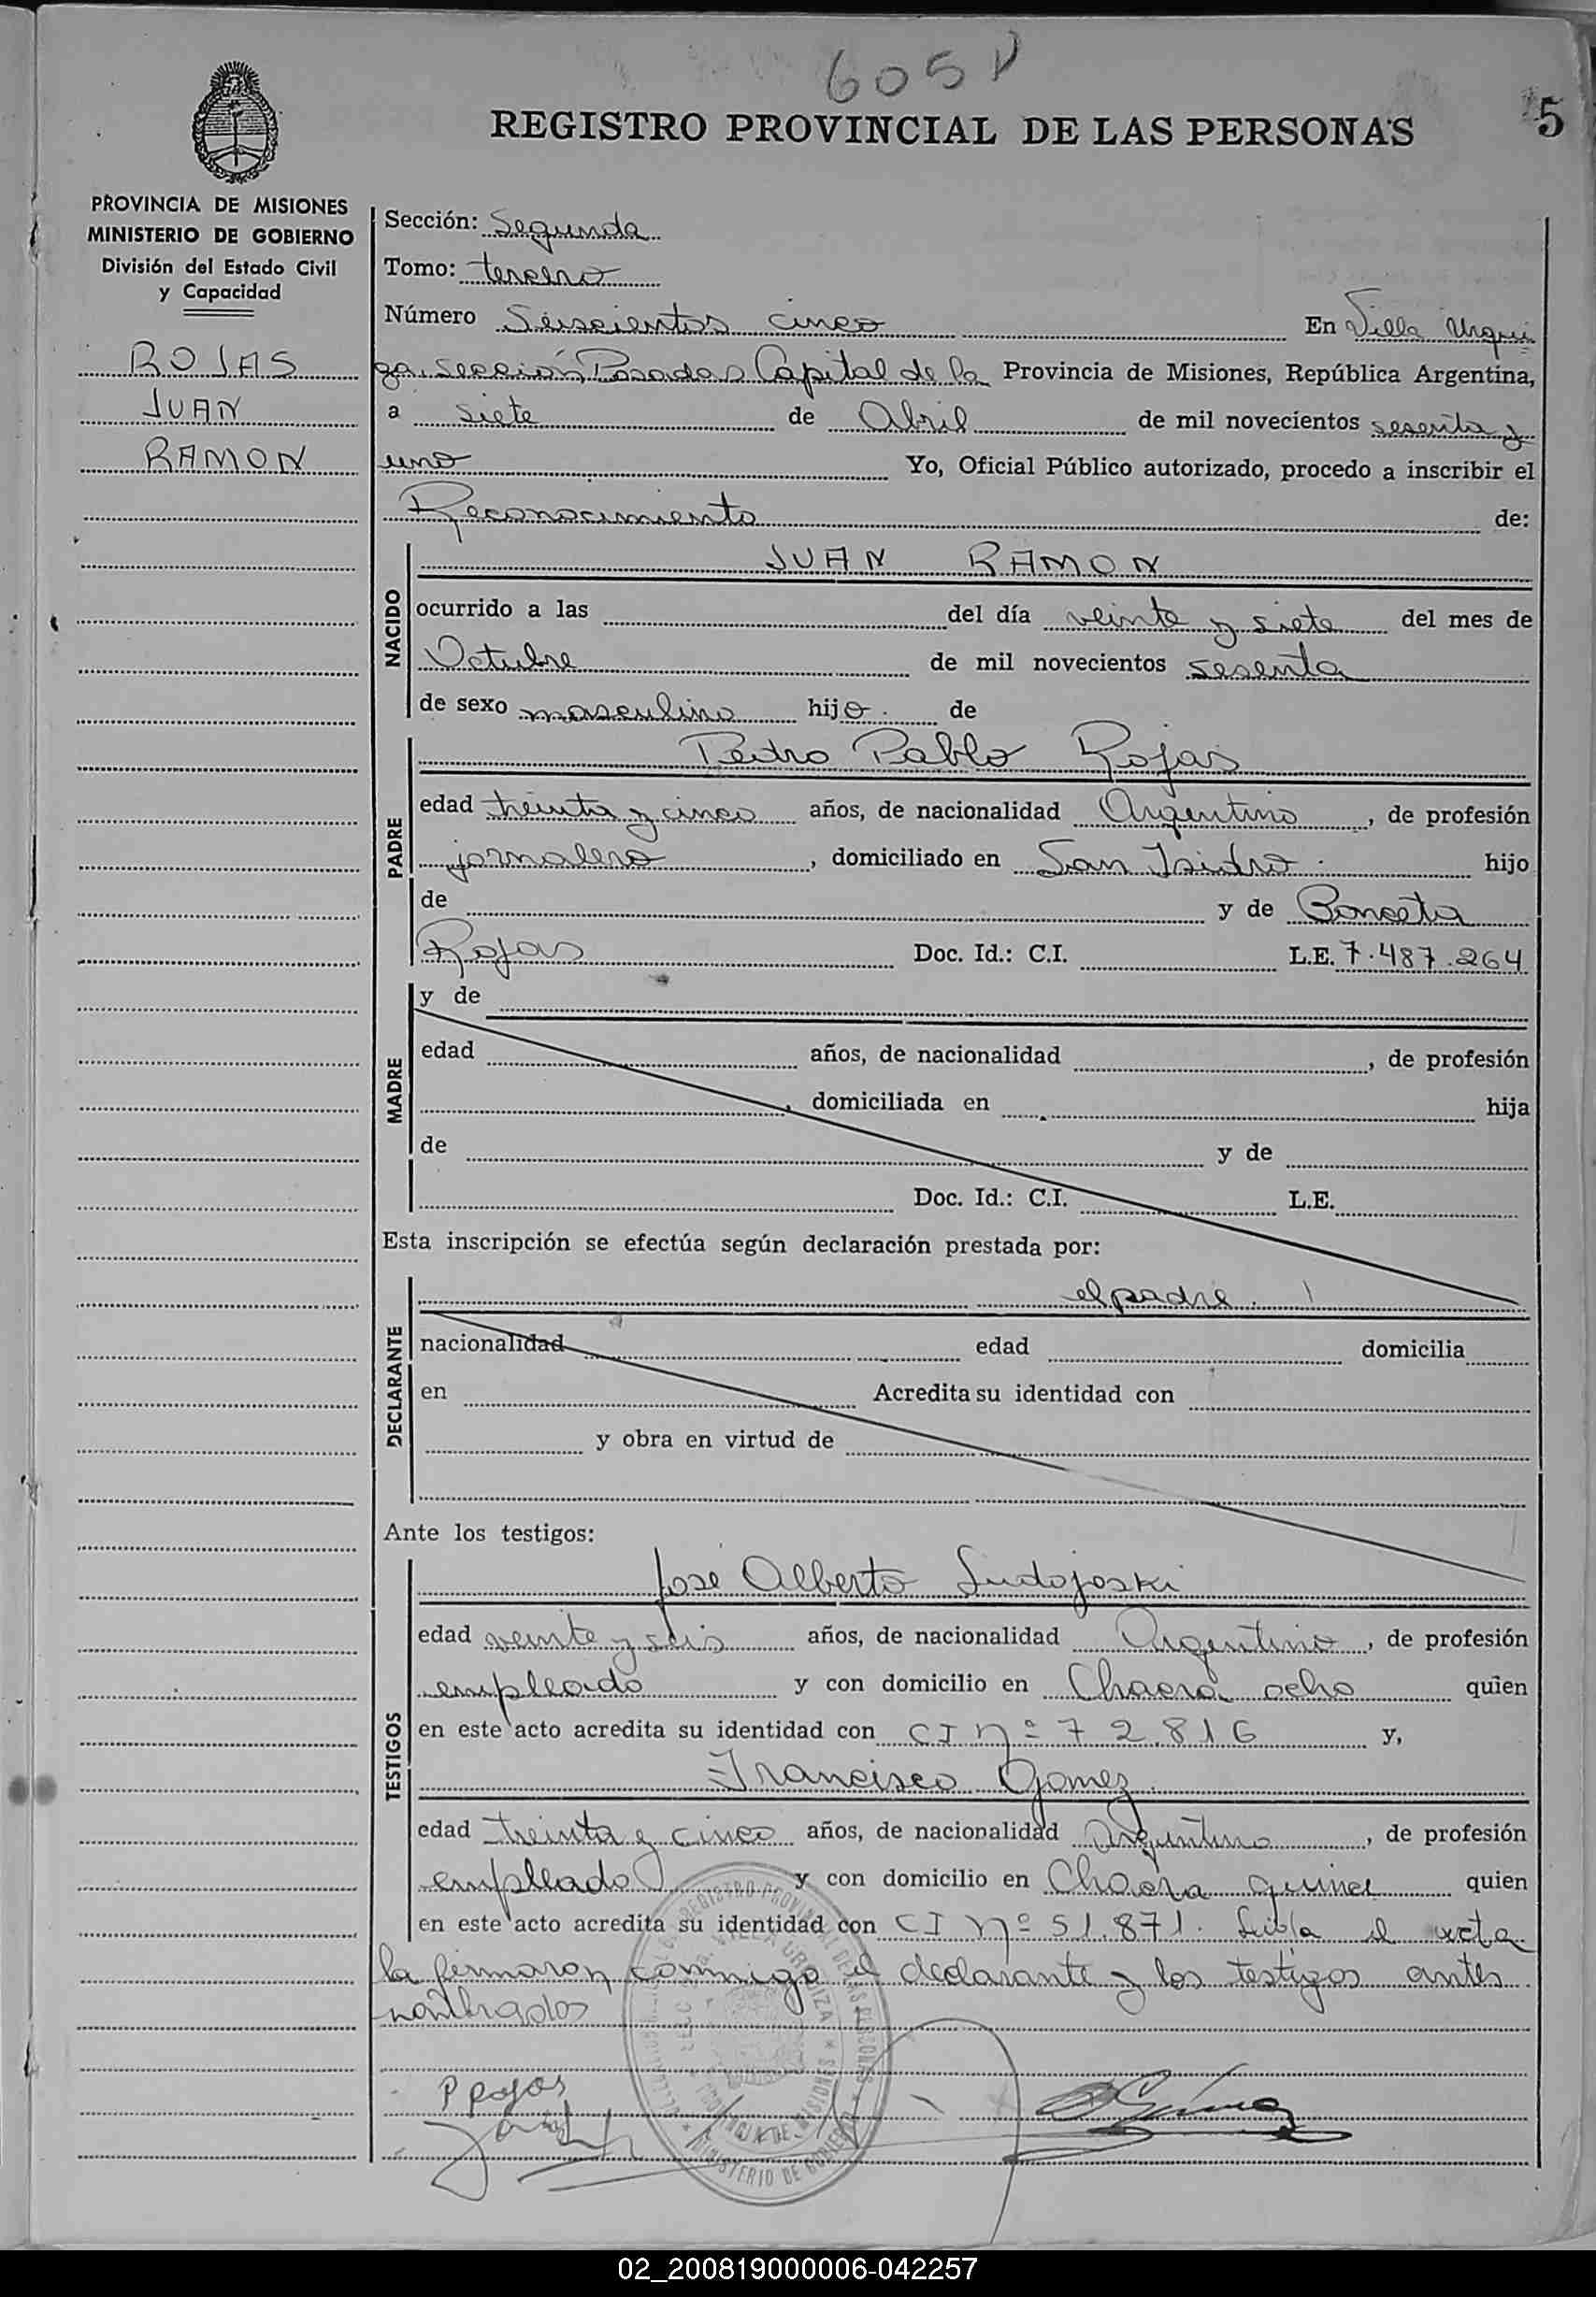 605
5
REGISTRO PROVINCIAL DE LAS PERSONAS
PROVINCIA DE MISIONES
MINISTERIO DE GOBIERNO
División del Estado Civil
y Capacidad
ROJAS
JUAN
RAMON
Sección: Segunda
Tomo: tercero
Número Seiscientos cinco En Villa Urqui
za, Sección Posadas Capital de la Provincia de Misiones, República Argentina,
a siete de Abril de mil novecientos sesenta y
uno Yo, Oficial Público autorizado, procedo a inscribir el
Reconocimiento de:
NACIDO
JUAN RAMON
ocurrido a las del día veinte y siete del mes de
Octubre de mil novecientos sesenta
de sexo masculino hijo de
PADRE
Pedro Pablo Rojas
edad treinta y cinco años, de nacionalidad Argentino, de profesión
jornalero, domiciliado en San Isidro hijo
de y de
Rojas Doc. Id.: C.I. L.E. 7.487.264
MADRE
y de
edad años, de nacionalidad , de profesión
, domiciliada en hija
de y de
Doc. Id.: C.I. L.E.
Esta inscripción se efectúa según declaración prestada por:
DECLARANTE
el padre.
nacionalidad edad domicilia
en Acredita su identidad con
y obra en virtud de
Ante los testigos:
TESTIGOS
José Alberto Ludojoski
edad veinte y seis años, de nacionalidad Argentino, de profesión
empleado y con domicilio en Chacra ocho quien
en este acto acredita su identidad con CI Nº 72.816 y,
Francisco Gomez
edad treinta y cinco años, de nacionalidad Argentino, de profesión
empleado y con domicilio en Chacra quince quien
en este acto acredita su identidad con CI Nº 51.871. Leida el acta
la firmaron conmigo el declarante y los testigos antes
nombrados
P Rojas
02_200819000006-042257